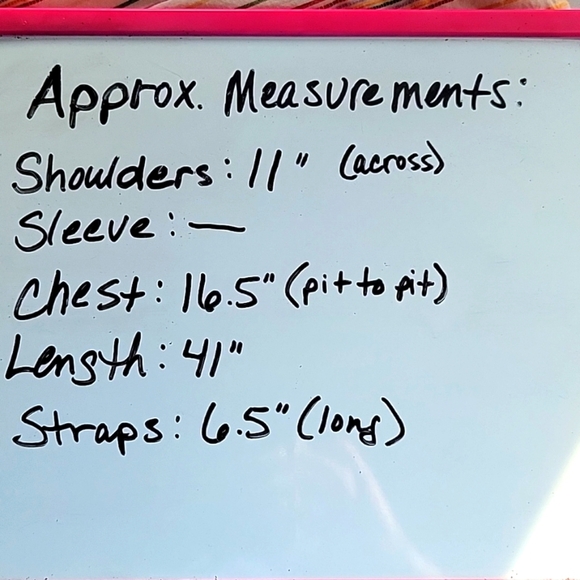 Approx. Measurements:
Shoulders: 11" (across)
Sleeve: —
Chest: 16.5" (pit to pit)
Length: 41"
Straps: 6.5" (long)